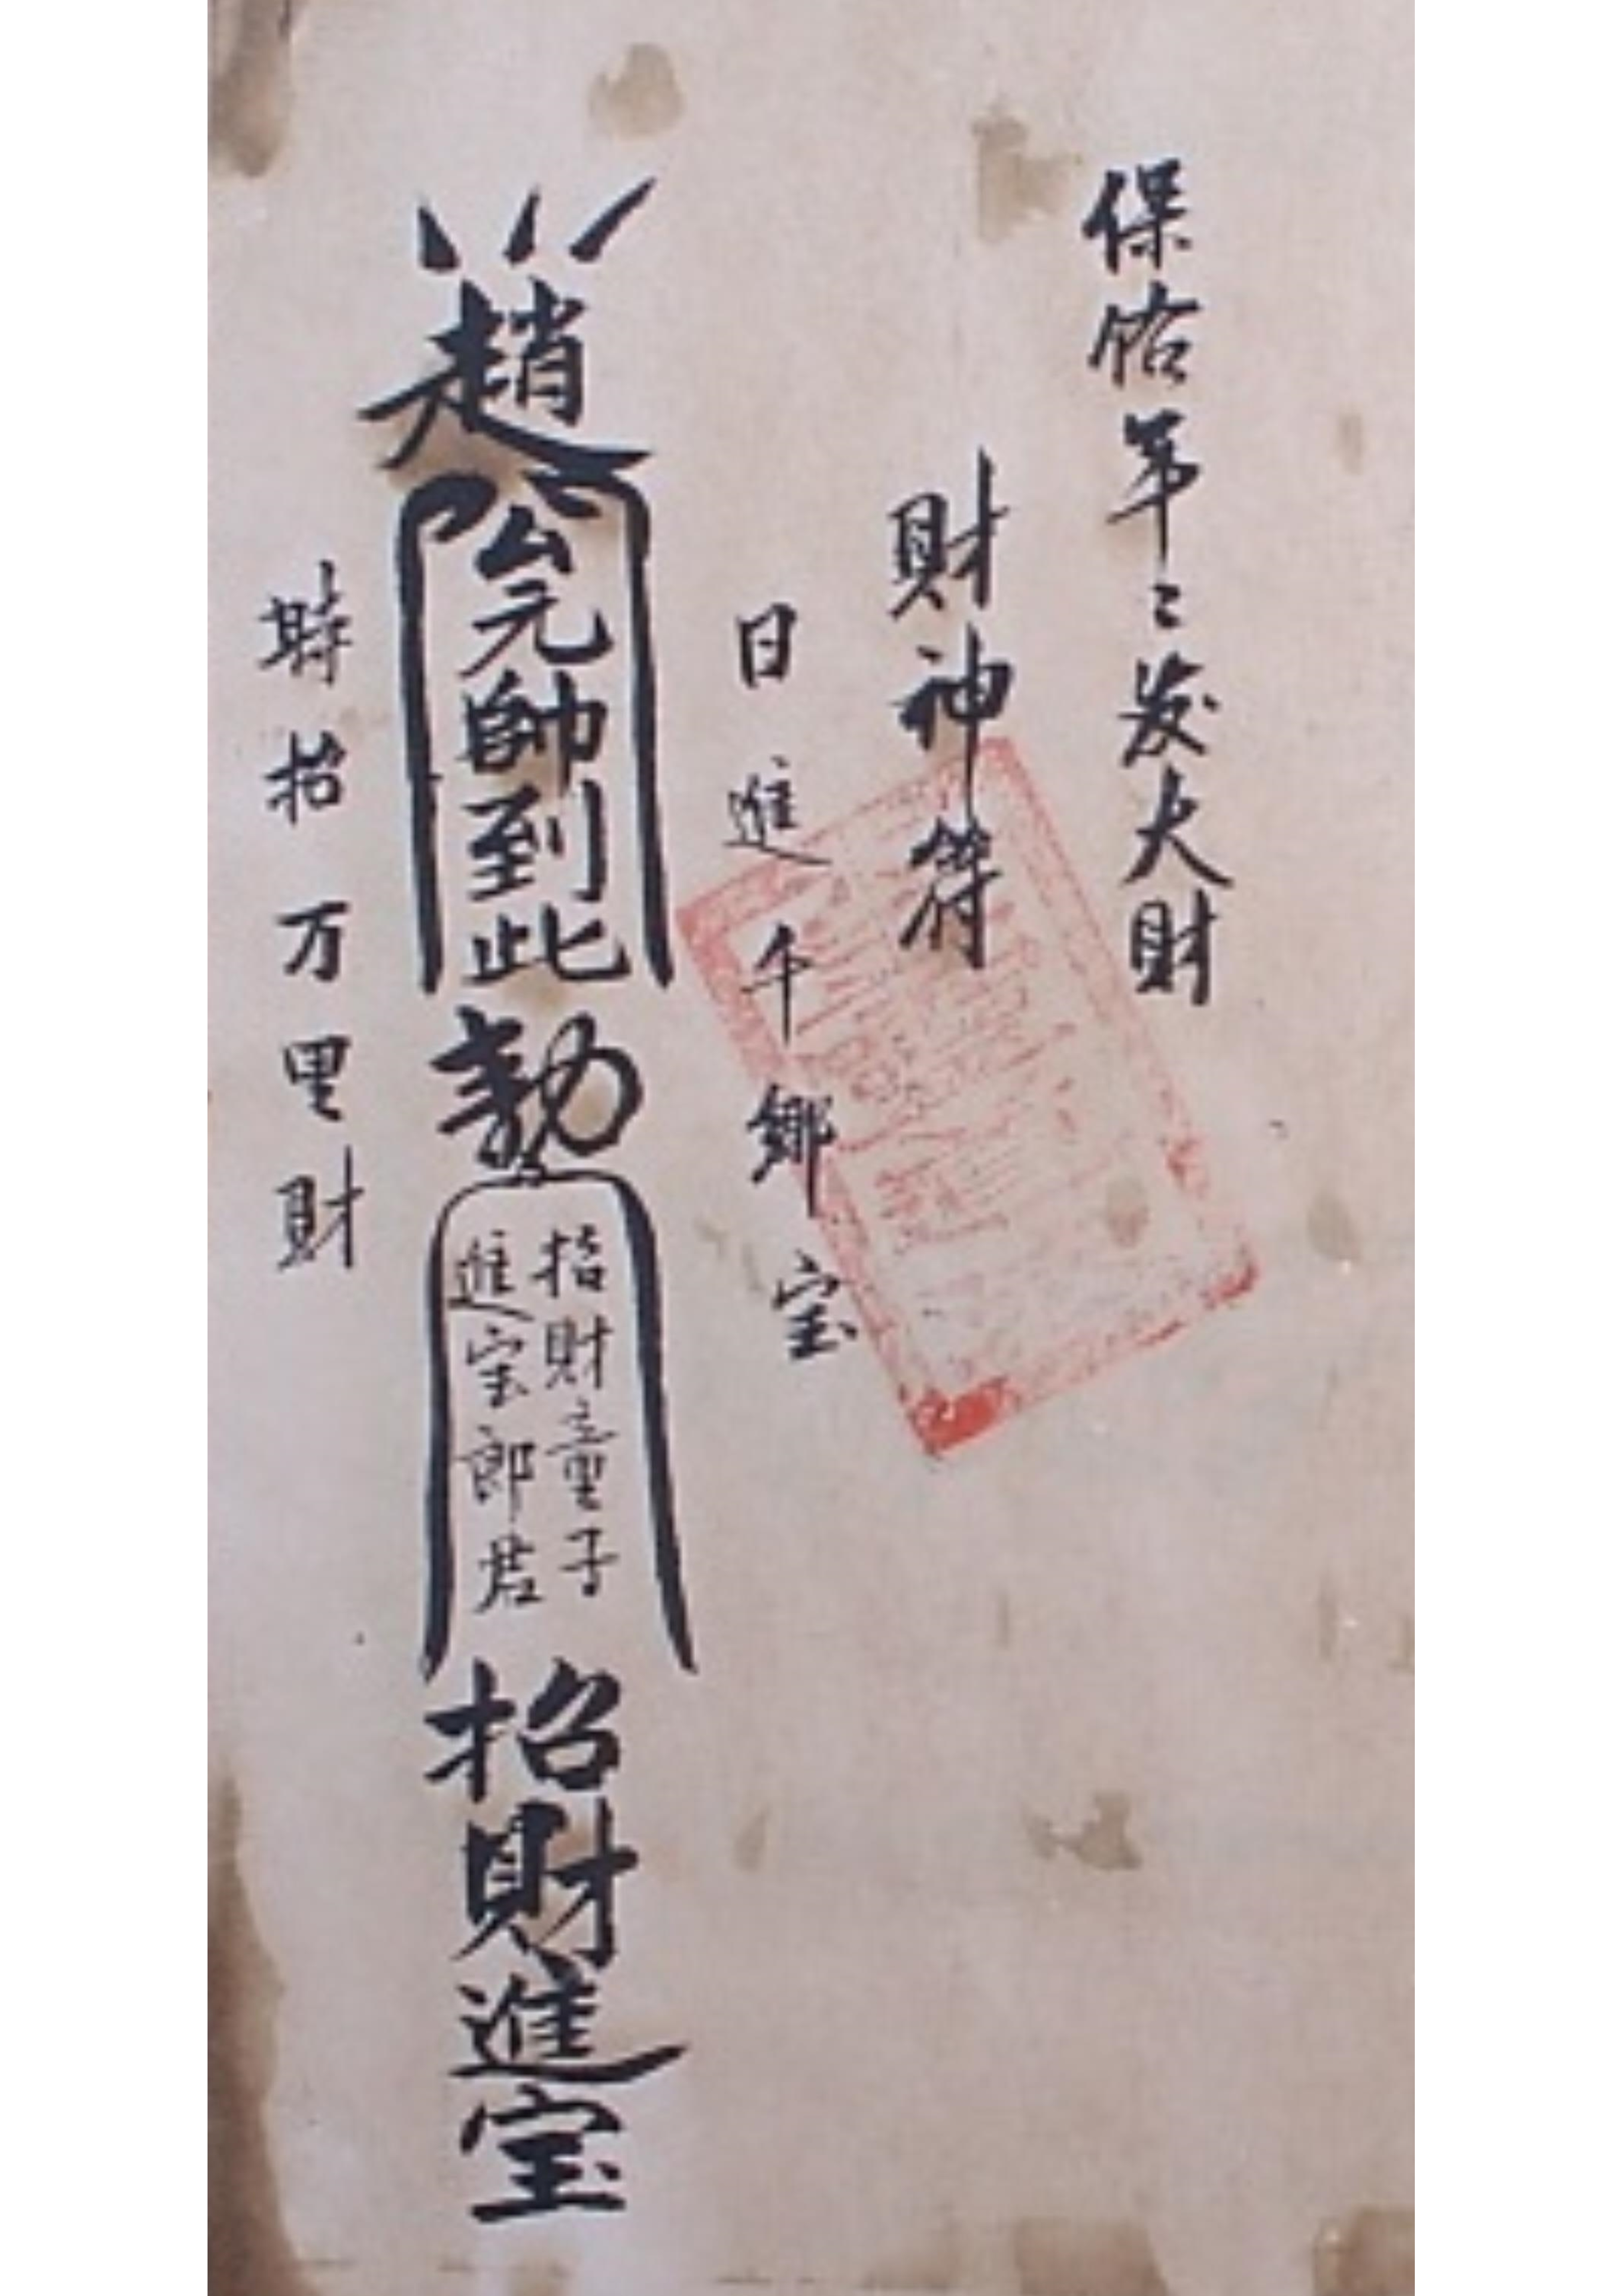 保佑年〻发大財
財神符
日進千鄉宝
趙公元帥到此
勅
招財童子
進宝郎君
招財進宝
時招万里財